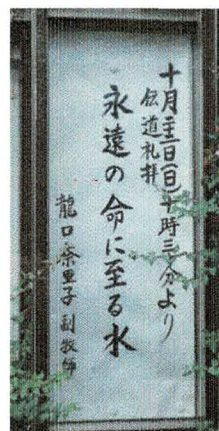 十月日(日)十時三十分より
伝道礼拝
永遠の命に至る水
龍口奈里子副牧師